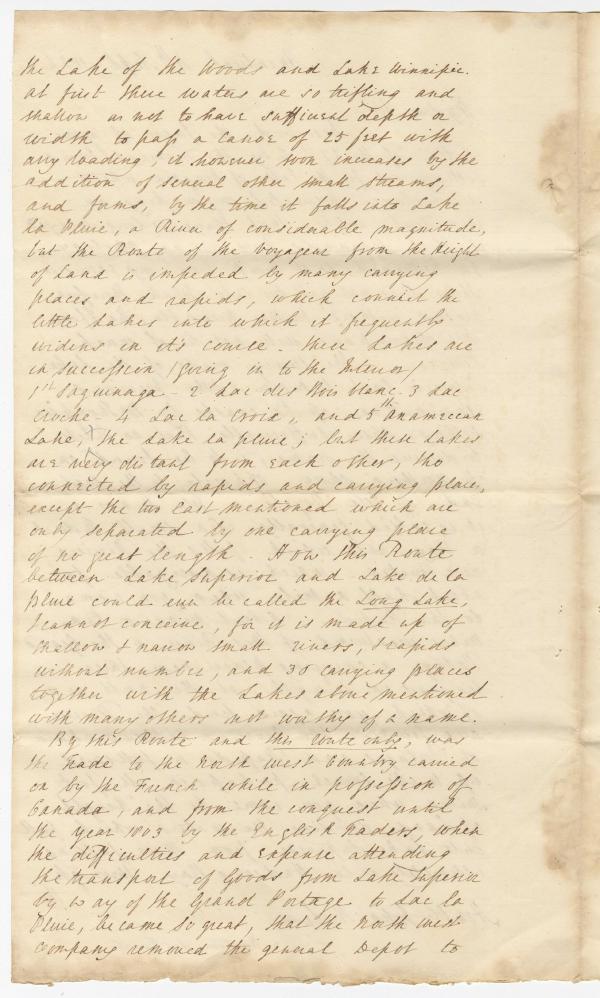 the Lake of the Woods and Lake Winnipic.
at first these waters are so trifling and
shallow as not to have sufficient depth or
width to pass a Canoe of 25 feet with
any loading, it however soon increases by the
addition of several other small streams,
and forms, by the time it falls into Lake
la Pluie, a River of considerable magnitude,
but the Route of the Voyageur from the Height
of Land is impeded by many carrying
places and rapids, which connect the
little Lakes into which it frequently
widens in it's course. These Lakes are
in succession /going in to the Interior/
1st Saguinaga - 2 Lac des Bois blanc. 3 Lac
Croche - 4 Lac la Croix, and 5th Anameccan
Lake, The Lake la pluie; but these Lakes
are very distant from each other, tho
connected by rapids and carrying places,
except the two last mentioned which are
only separated by one carrying place
of no great length. How this Route
between Lake Superior and Lake de la
Pluie could ever be called the Long Lake,
I cannot conceive, for it is made up of
shallow & narrow small rivers, & rapids
without number, and 30 carrying places
together with the Lakes above mentioned
with many others not worthy of a name.
By this Route and this route only, was
the Trade to the North west Country carried
on by the French while in possession of
Canada, and from the conquest until
the year 1803 by the English Traders, when
the difficulties and expense attending
the transport of Goods from Lake Superior
by way of the Grand Portage to Lac la
Pluie, became so great, that the North west
Company removed the general Depot to